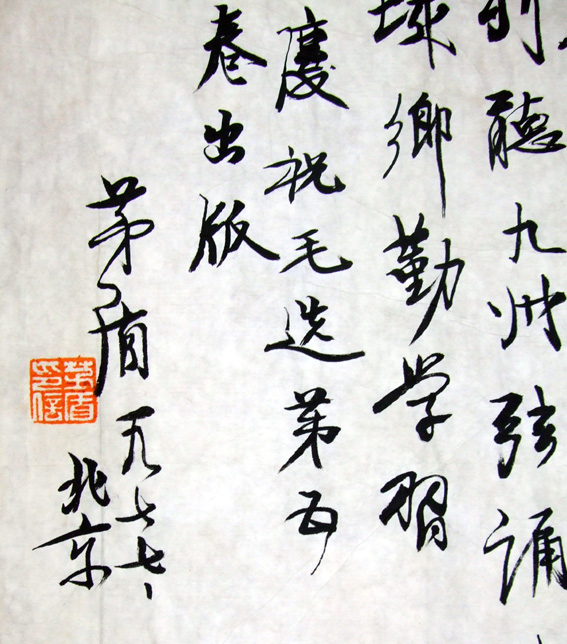 聽九州弦誦
城鄉勤学習
慶祝毛选第五
卷出版
茅盾一九七七、
北京
茅盾
印信